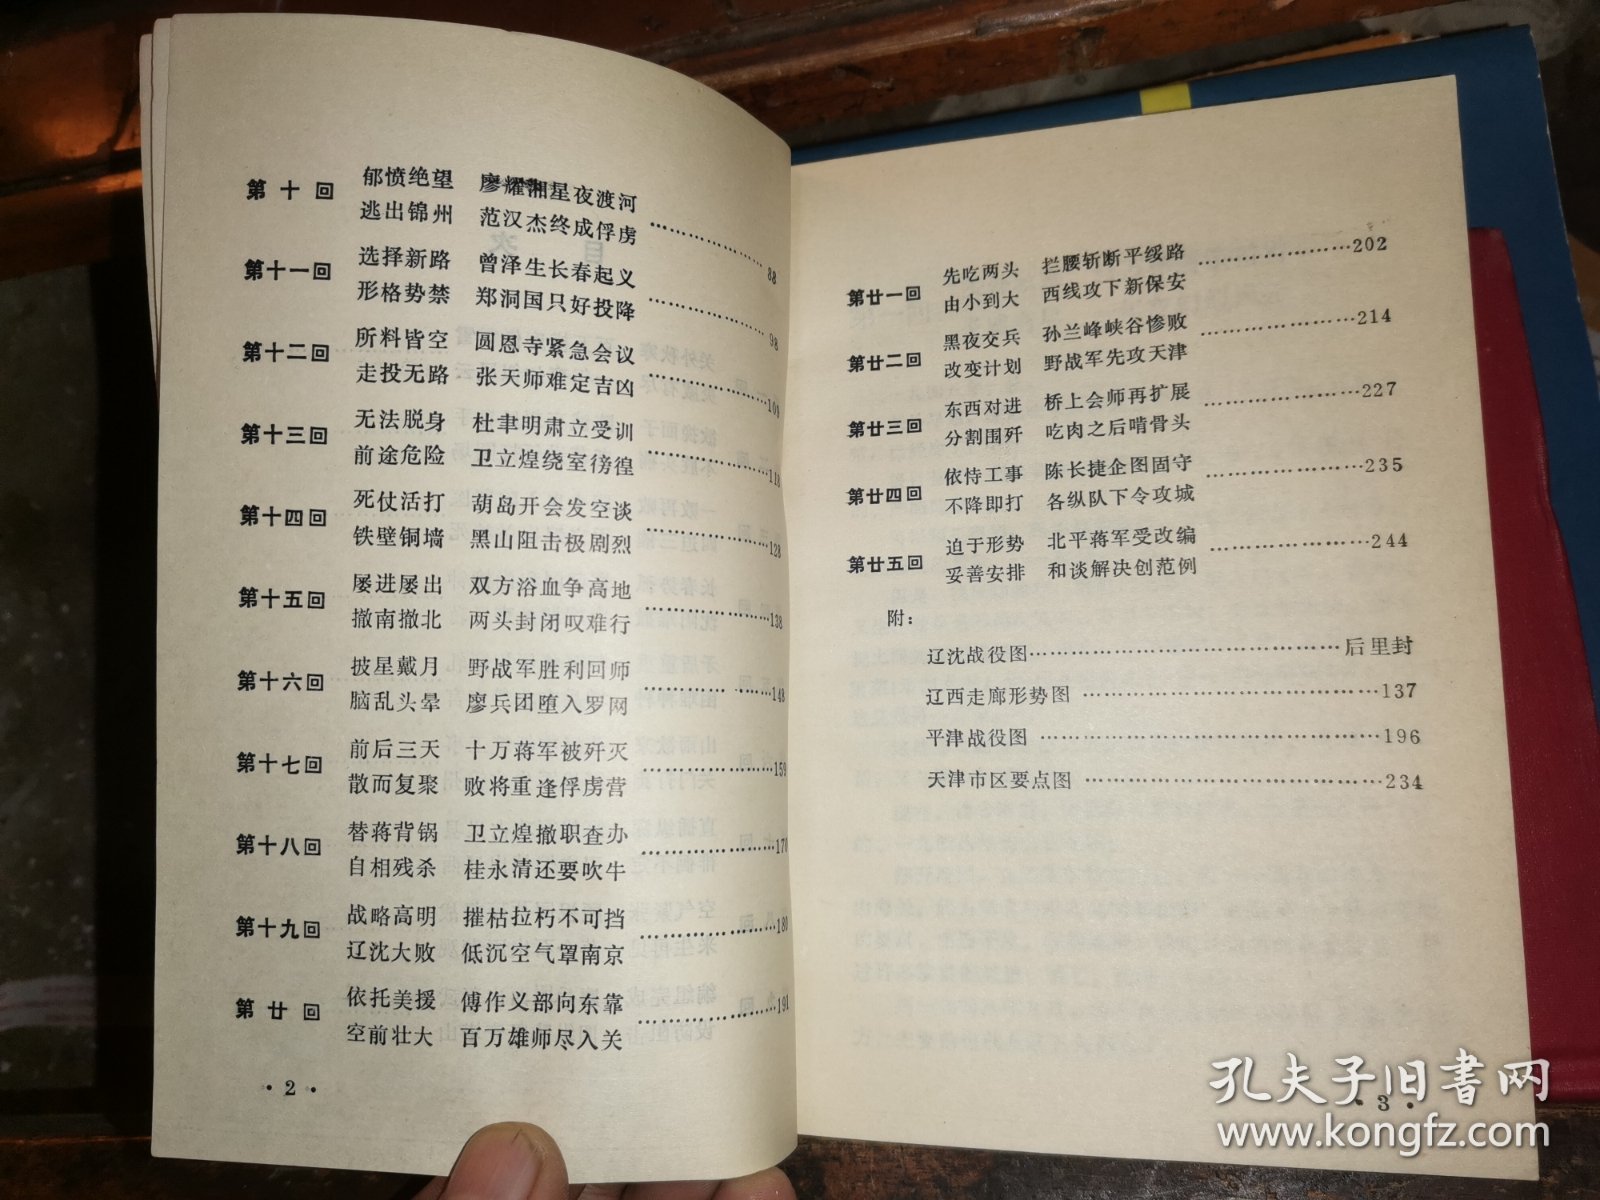 第十回 郁愤绝望 廖耀湘星夜渡河
逃出锦州 范汉杰终成俘虏 ……………… 88
第十一回 选择新路 曾泽生长春起义
形格势禁 郑洞国只好投降 ……………… 98
第十二回 所料皆空 圆恩寺紧急会议
走投无路 张天师难定吉凶 ………………109
第十三回 无法脱身 杜聿明肃立受训
前途危险 卫立煌绕室彷徨 ………………118
第十四回 死仗活打 葫岛开会发空谈
铁壁铜墙 黑山阻击极剧烈 ………………128
第十五回 屡进屡出 双方浴血争高地
撤南撤北 两头封闭叹难行 ………………138
第十六回 披星戴月 野战军胜利回师
脑乱头晕 廖兵团堕入罗网 ………………148
第十七回 前后三天 十万蒋军被歼灭
散而复聚 败将重逢俘虏营 ………………159
第十八回 替蒋背锅 卫立煌撤职查办
自相残杀 桂永清还要吹牛 ………………170
第十九回 战略高明 摧枯拉朽不可挡
辽沈大败 低沉空气罩南京 ………………180
第廿回 依托美援 傅作义部向东靠
空前壮大 百万雄师尽入关 ………………191
· 2 ·
第廿一回 先吃两头 拦腰斩断平绥路
由小到大 西线攻下新保安 ………………202
第廿二回 黑夜交兵 孙兰峰峡谷惨败
改变计划 野战军先攻天津 ………………214
第廿三回 东西对进 桥上会师再扩展
分割围歼 吃肉之后啃骨头 ………………227
第廿四回 依恃工事 陈长捷企图固守
不降即打 各纵队下令攻城 ………………235
第廿五回 迫于形势 北平蒋军受改编
妥善安排 和谈解决创范例 ………………244
附：
辽沈战役图……………………………后里封
辽西走廊形势图 ……………………………137
平津战役图 ……………………………196
天津市区要点图 ……………………………234
· 3 ·
孔夫子旧书网
www.kongfz.com